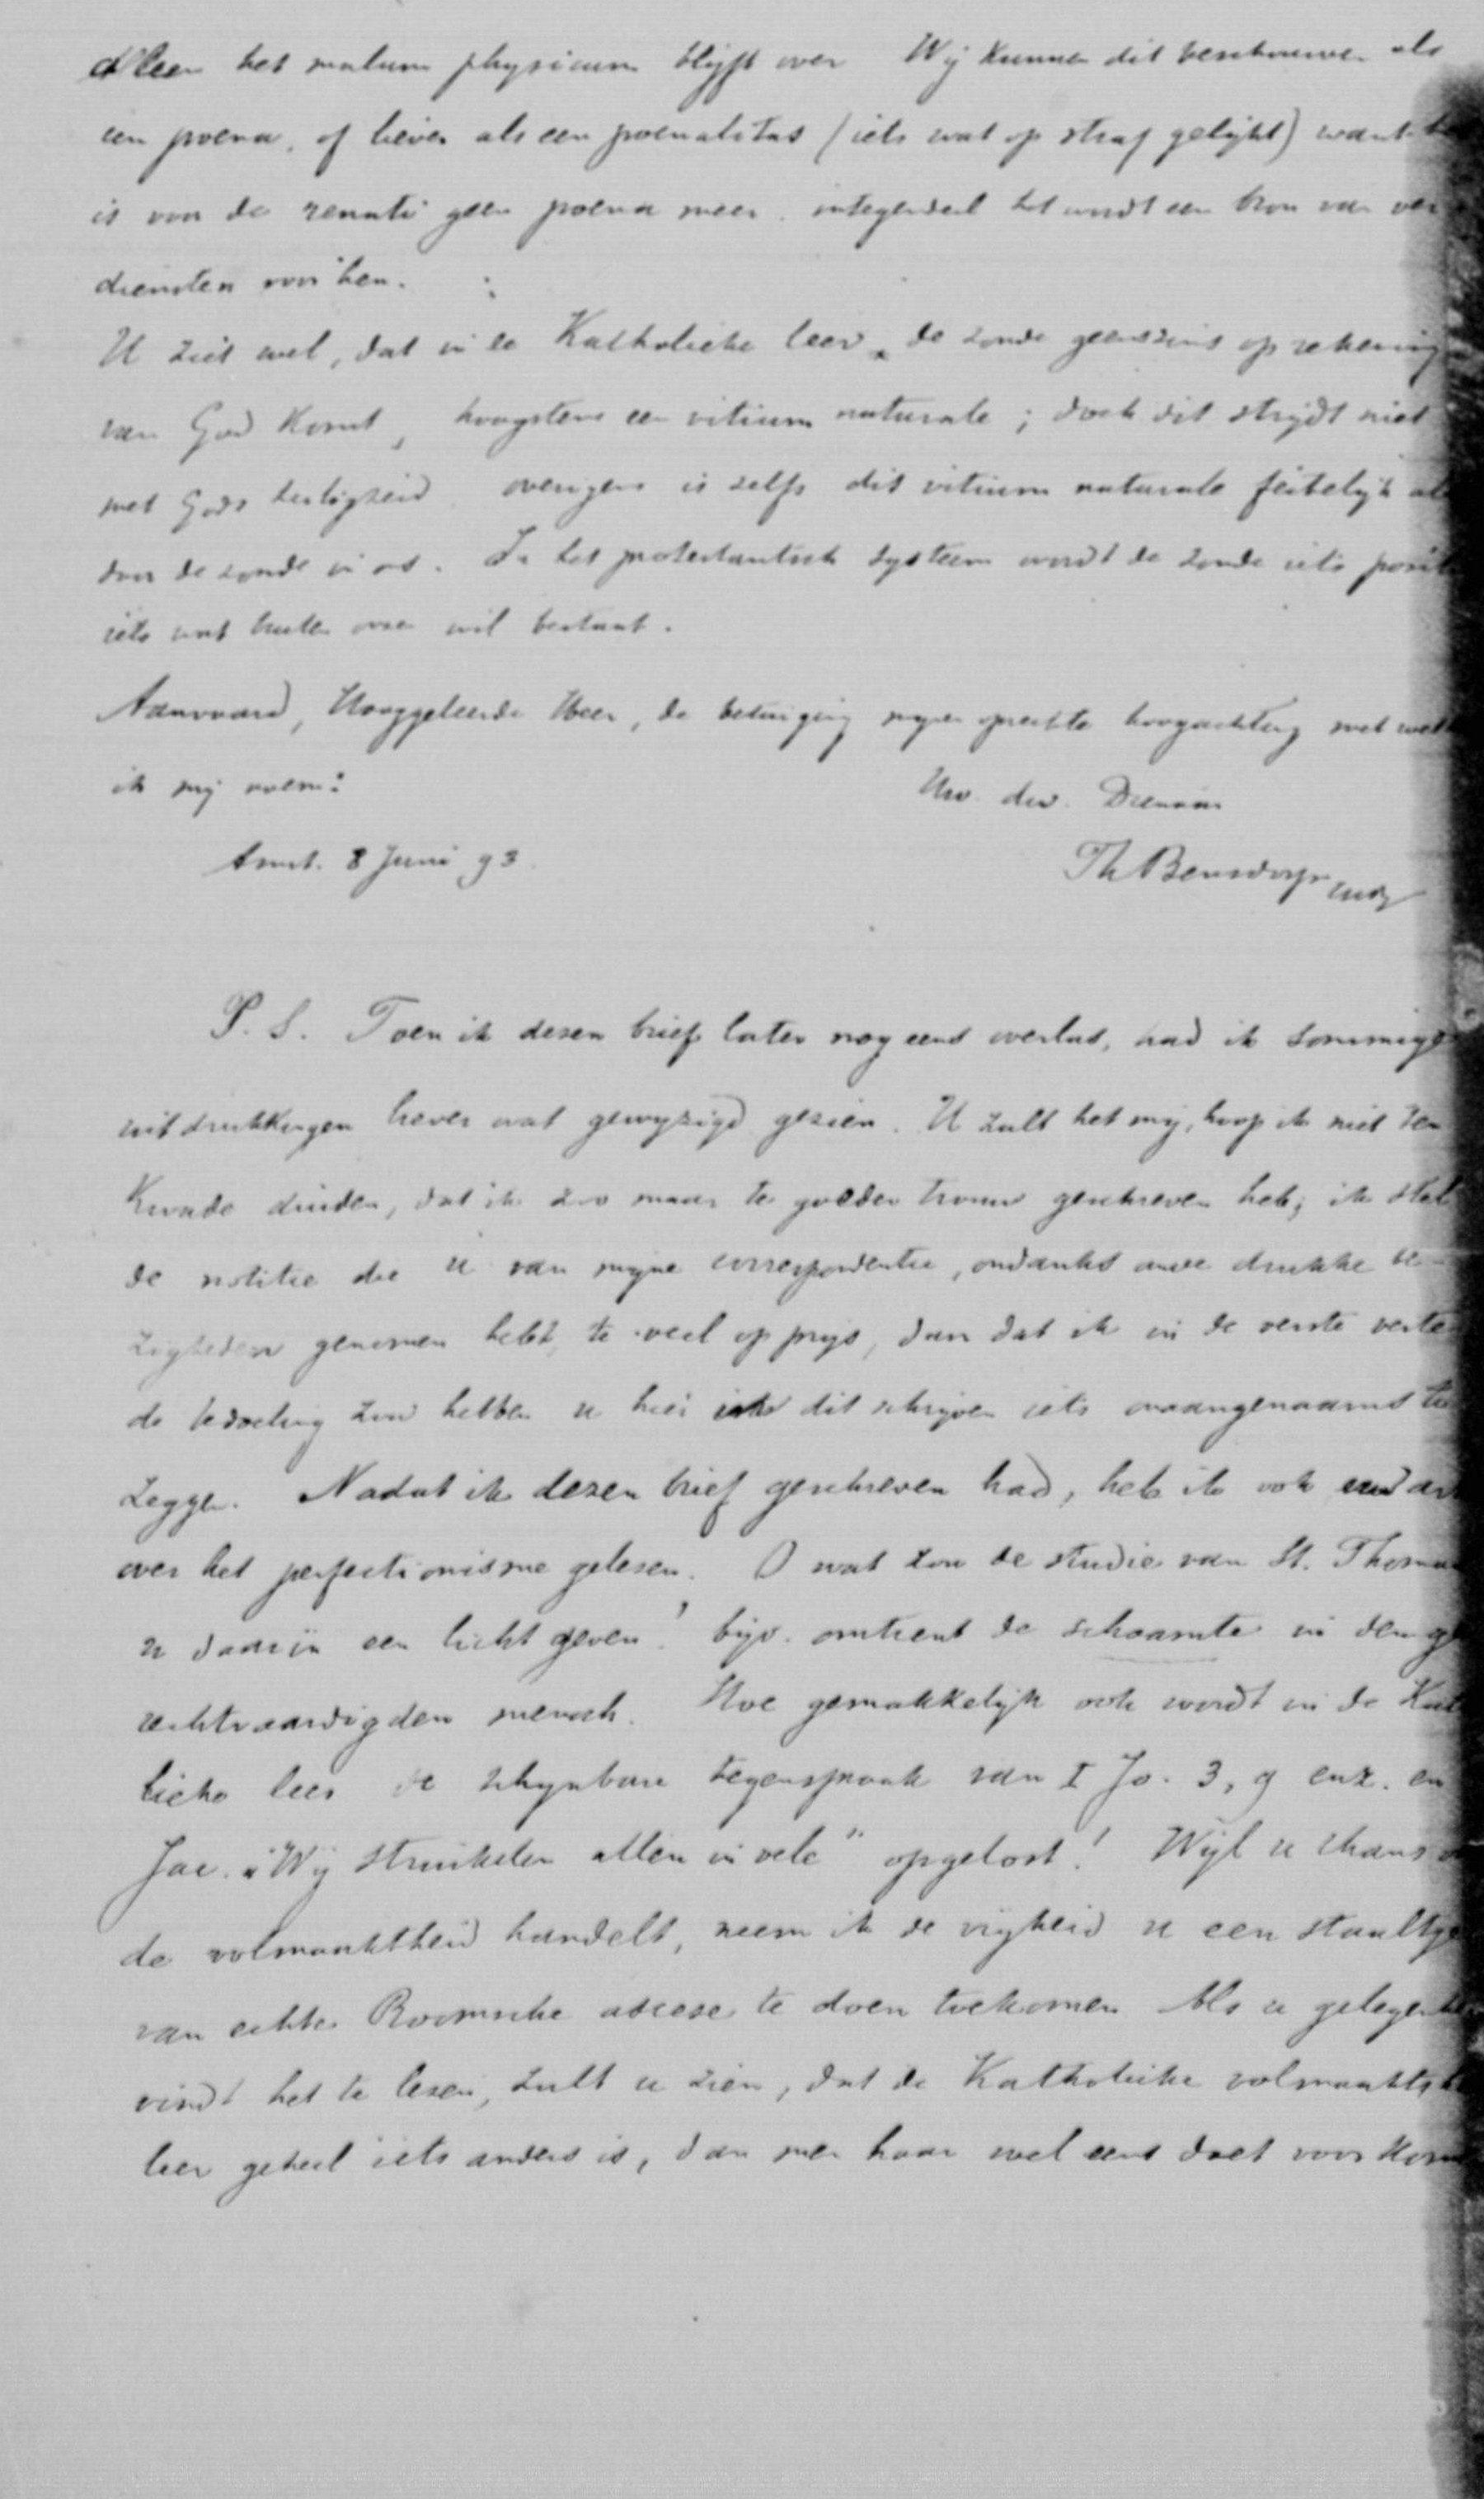 Alleen het malum physicum blijft over Wij kunnen dit beschouwen als
een poena, of liever als een poenalitas (iets wat op straf gelijkt) want
is voor de renati geen poena meer. integendeel het wordt een bron van ver
diensten voor hen.
U ziet wel, dat in de Katholieke leer de zonde geenszins op rekening
van God komt, hoogstens een vitium naturale; doch dit strijdt niet
met Gods heiligheid overigens is zelfs dit vitium naturale feitelijk
door de zonde in ons. In het protestantsch systeem wordt de zonde iets
iets wat buiten onze wil bestaat.
Aanvaard, Hooggeleerde Heer, de betuiging mijner oprechte hoogachting met
ik mij noem:
Uw. dw. Dienaar
Amst. 8 Juni 93.
Th Bensdorp
P. S. Toen ik dezen brief later nog eens overlas, had ik sommige
uitdrukkingen liever wat gewyzigd gezien. U zult het mij, hoop ik niet ten
kwade duiden, dat ik zoo maar te goeder trouw geschreven heb; ik stel
de notitie die u van mijne correspondentie, ondanks uwe drukke be-
zigheden genomen hebt, te veel op prijs, dan dat ik in de verste verte
de bedoeling zou hebben u hier dit schrijven iets onaangenaams te
zeggen. Nadat ik dezen brief geschreven had, heb ik ook
over het perfectionisme gelezen. O wat zou de studie van St. Thomas
u daarin een licht geven! bijv. omtrent de schaamte in den ge
rechtvaardigden mensch. Hoe gemakkelijk ook wordt in de Kat
lieke leer de schynbare tegenspraak van I Jo. 3, 9 enz. en
Jac. "Wij struikelen allen in vele" opgelost! Wijl u thans
de volmaaktheid handelt, neem ik de vrijheid u een staaltje
van echte Roomsche ascese te doen toekomen Als u gelegen
vindt het te lezen, zult u zien, dat de Katholieke volmaakt
leer geheel iets anders is, dan men haar wel eens doet voor kom